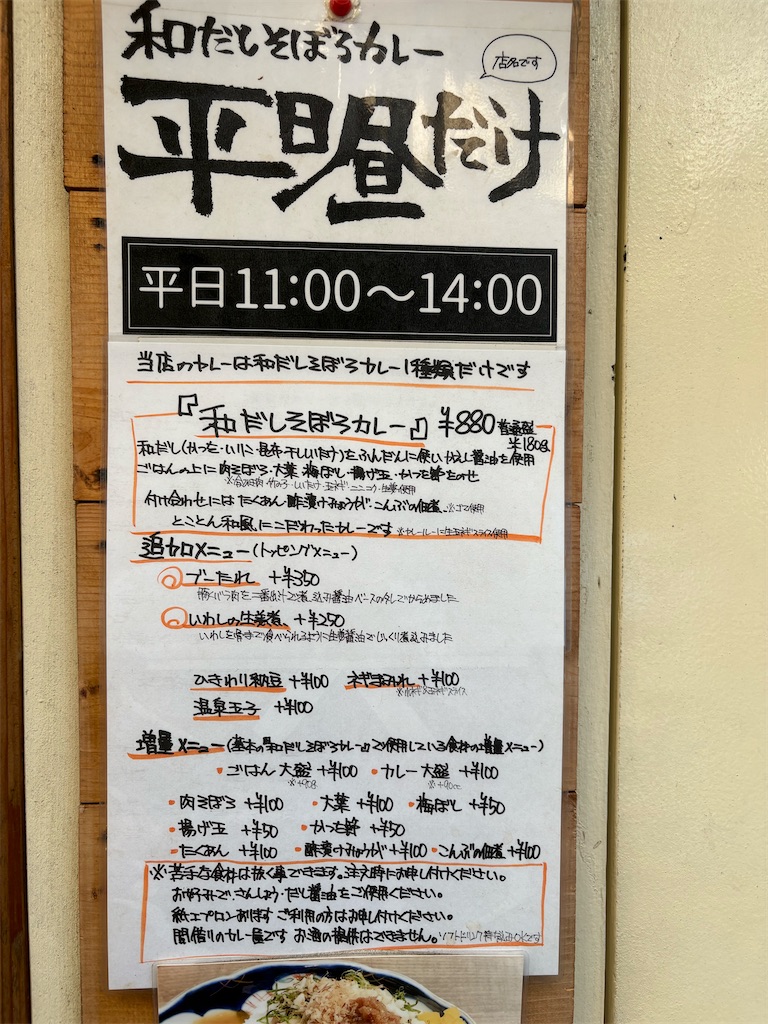 和だしそぼろカレー
店名です
平日昼だけ
平日11:00〜14:00
当店のカレーは和だしそぼろカレー1種類だけです
『和だしそぼろカレー』 ¥880 普通盛
米180g
和だし(かつお・いりこ・昆布・干ししいたけ)をふんだんに使い かえし醤油を使用
ごはんの上に 肉そぼろ・大葉・梅ぼし・揚げ玉・かつお節をのせ
※合挽肉・竹の子・しいたけ・玉ネギ・ニンニク・生姜使用
付け合わせには たくあん・酢漬けみょうが・こんぶの佃煮、※ゴマ使用
とことん和風にこだわったカレーです ※カレールーに生玉ネギスライス使用
追加メニュー(トッピングメニュー)
ブーたれ +¥350
豚バラ肉を二番出汁で煮込み醤油ベースのタレでからめました
いわしの生姜煮、+¥250
いわしを骨まで食べられるように生姜醤油でじっくり煮込みました
ひきわり納豆 +¥100 ネギまみれ +¥100
※小ネギ&玉ネギスライス
温泉玉子 +¥100
増量メニュー(基本の『和だしそぼろカレー』で使用している食材の増量メニュー)
・ごはん 大盛 +¥100 ・カレー 大盛 +¥100
※+90g ※+90cc
・肉そぼろ +¥100 ・大葉 +¥100 ・梅ぼし +¥50
・揚げ玉 +¥50 ・かつお節 +¥50
・たくあん +¥100 ・酢漬けみょうが +¥100 ・こんぶの佃煮 +¥100
※苦手な食材は抜く事できます。注文時にお申し付けください。
お好みで、さんしょう・だし醤油をご使用ください。
紙エプロンあります ご利用の方はお申し付けください。
間借りのカレー屋です お酒の提供はできません。ソフトドリンク持ち込みOKです